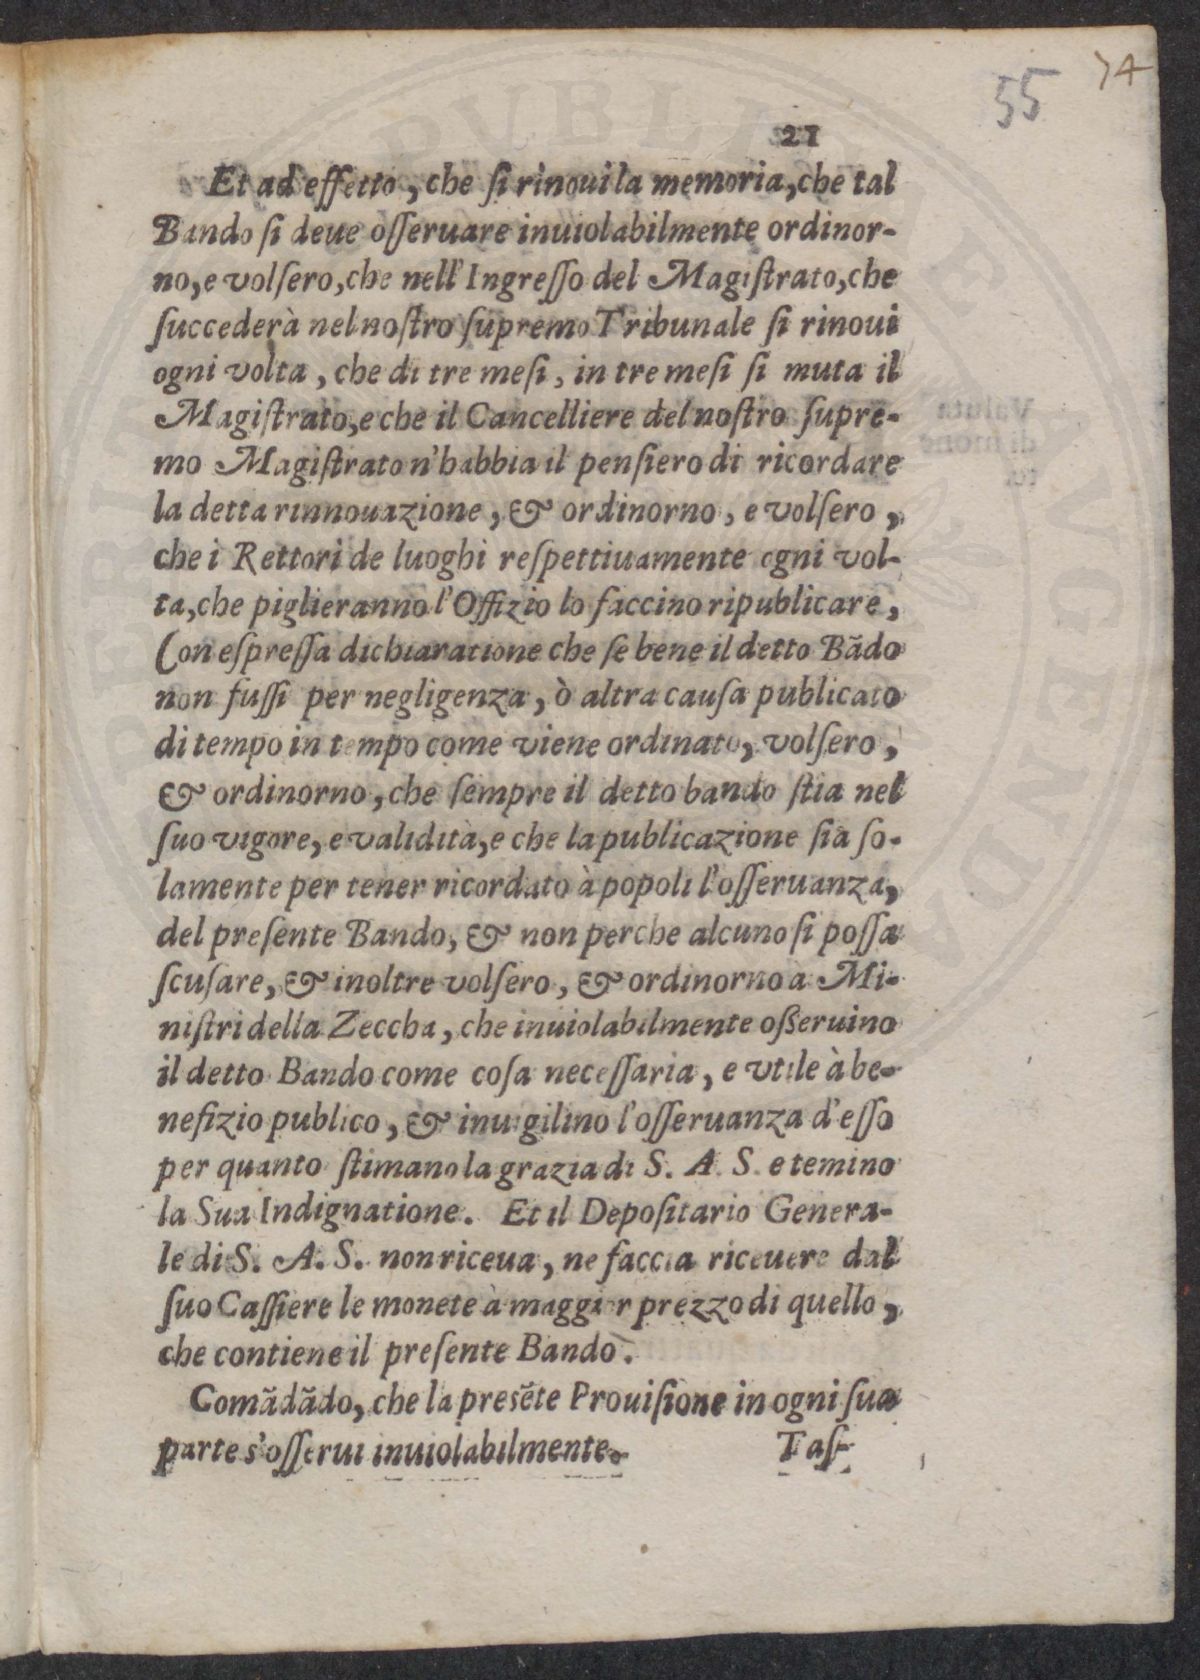 55 74
21
Et ad effetto, che si rinoui la memoria, che tal
Bando si deue osseruare inuiolabilmente ordinor-
no, e volsero, che nell'Ingresso del Magistrato, che
succederà nel nostro supremo Tribunale si rinoui
ogni volta, che di tre mesi, in tre mesi si muta il
Magistrato, e che il Cancelliere del nostro supre-
mo Magistrato n'habbia il pensiero di ricordare
la detta rinnouazione, & ordinorno, e volsero,
che i Rettori de luoghi respettiuamente ogni vol-
ta, che piglieranno l'Offizio lo faccino ripublicare,
Con espressa dichiaratione che se bene il detto Bãdo
non fussi per negligenza, ò altra causa publicato
di tempo in tempo come viene ordinato, volsero,
& ordinorno, che sempre il detto bando stia nel
suo vigore, e validità, e che la publicazione sia so-
lamente per tener ricordato à popoli l'osseruanza,
del presente Bando, & non perche alcuno si possa
scusare, & inoltre volsero, & ordinorno à Mi-
nistri della Zeccha, che inuiolabilmente osseruino
il detto Bando come cosa necessaria, e vtile à be-
nefizio publico, & inuigilino l'osseruanza d'esso
per quanto stimano la grazia di S. A. S. e temino
la Sua Indignatione. Et il Depositario Genera-
le di S. A. S. non riceua, ne faccia riceuere dal
suo Cassiere le monete à maggior prezzo di quello,
che contiene il presente Bando.
Comãdãdo, che la presẽte Prouisione in ogni sua
parte s'osserui inuiolabilmente. Tas-